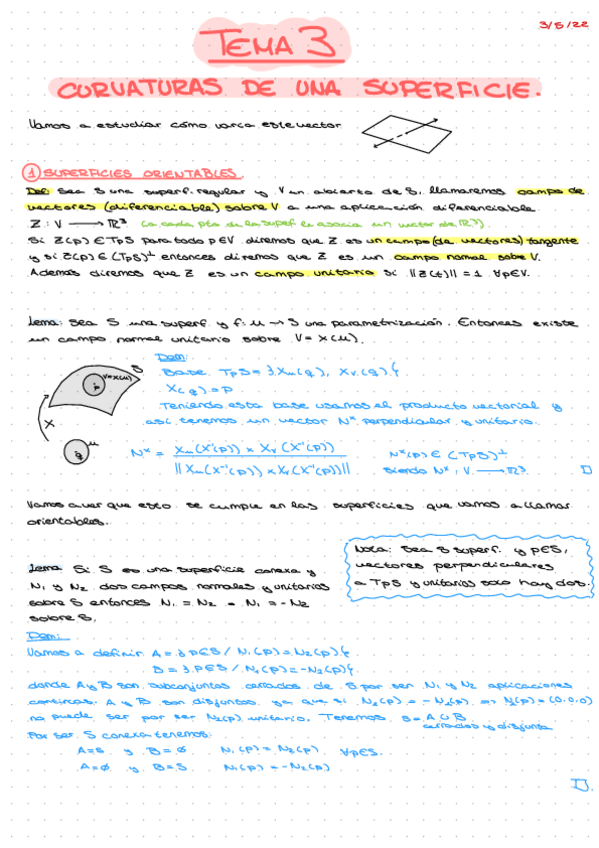 3/5/22
TEMA 3
CURVATURAS DE UNA SUPERFICIE.
Vamos a estudiar cómo varía este vector
① SUPERFICIES ORIENTABLES
Def: Sea S una superf. regular y V un abierto de S, llamaremos campo de
vectores (diferenciable) sobre V a una aplicación diferenciable
Z: V → ℝ³ (a cada pto de la superf le asocia un vector de ℝ³).
Si Z(p) ∈ TpS para todo p∈V diremos que Z es un campo (de vectores) tangente
y si Z(p) ∈ (TpS)⊥ entonces diremos que Z es un campo normal sobre V.
Además diremos que Z es un campo unitario si ||Z(t)|| = 1 ∀p∈V.
Lema: Sea S una superf y f: u → S una parametrización. Entonces existe
un campo normal unitario sobre V = X(u).
Dem:
Base TpS = {Xu(q), Xv(q)}
X(q) = p
Teniendo esta base usamos el producto vectorial y
así tenemos un vector Nˣ perpendicular y unitario.
S
V=X(u)
p
X
u
q
Nˣ = Xu(X⁻¹(p)) × Xv(X⁻¹(p)) / ||Xu(X⁻¹(p)) × Xv(X⁻¹(p))||
Nˣ(p) ∈ (TpS)⊥
siendo Nˣ: V → ℝ³. □
Vamos a ver que esto se cumple en las superficies que vamos a llamar
orientables.
Nota: Sea S superf. y p∈S,
vectores perpendiculares
a TpS y unitarios solo hay dos.
Lema: Si S es una superficie conexa y
N₁ y N₂ dos campos normales y unitarios
sobre S entonces N₁ = N₂ o N₁ = -N₂
sobre S.
Dem:
Vamos a definir A = {p∈S / N₁(p) = N₂(p)}
B = {p∈S / N₁(p) = -N₂(p)}
donde A y B son subconjuntos cerrados de S por ser N₁ y N₂ aplicaciones
continuas. A y B son disjuntos ya que si N₂(p) = -N₂(p) ⇒ N₂(p) = (0,0,0)
no puede ser por ser N₂(p) unitario. Tenemos S = A∪B
cerrados y disjuntos
Por ser S conexa tenemos:
A=S y B=∅ N₁(p) = N₂(p) ∀p∈S.
A=∅ y B=S N₁(p) = -N₂(p)
□.